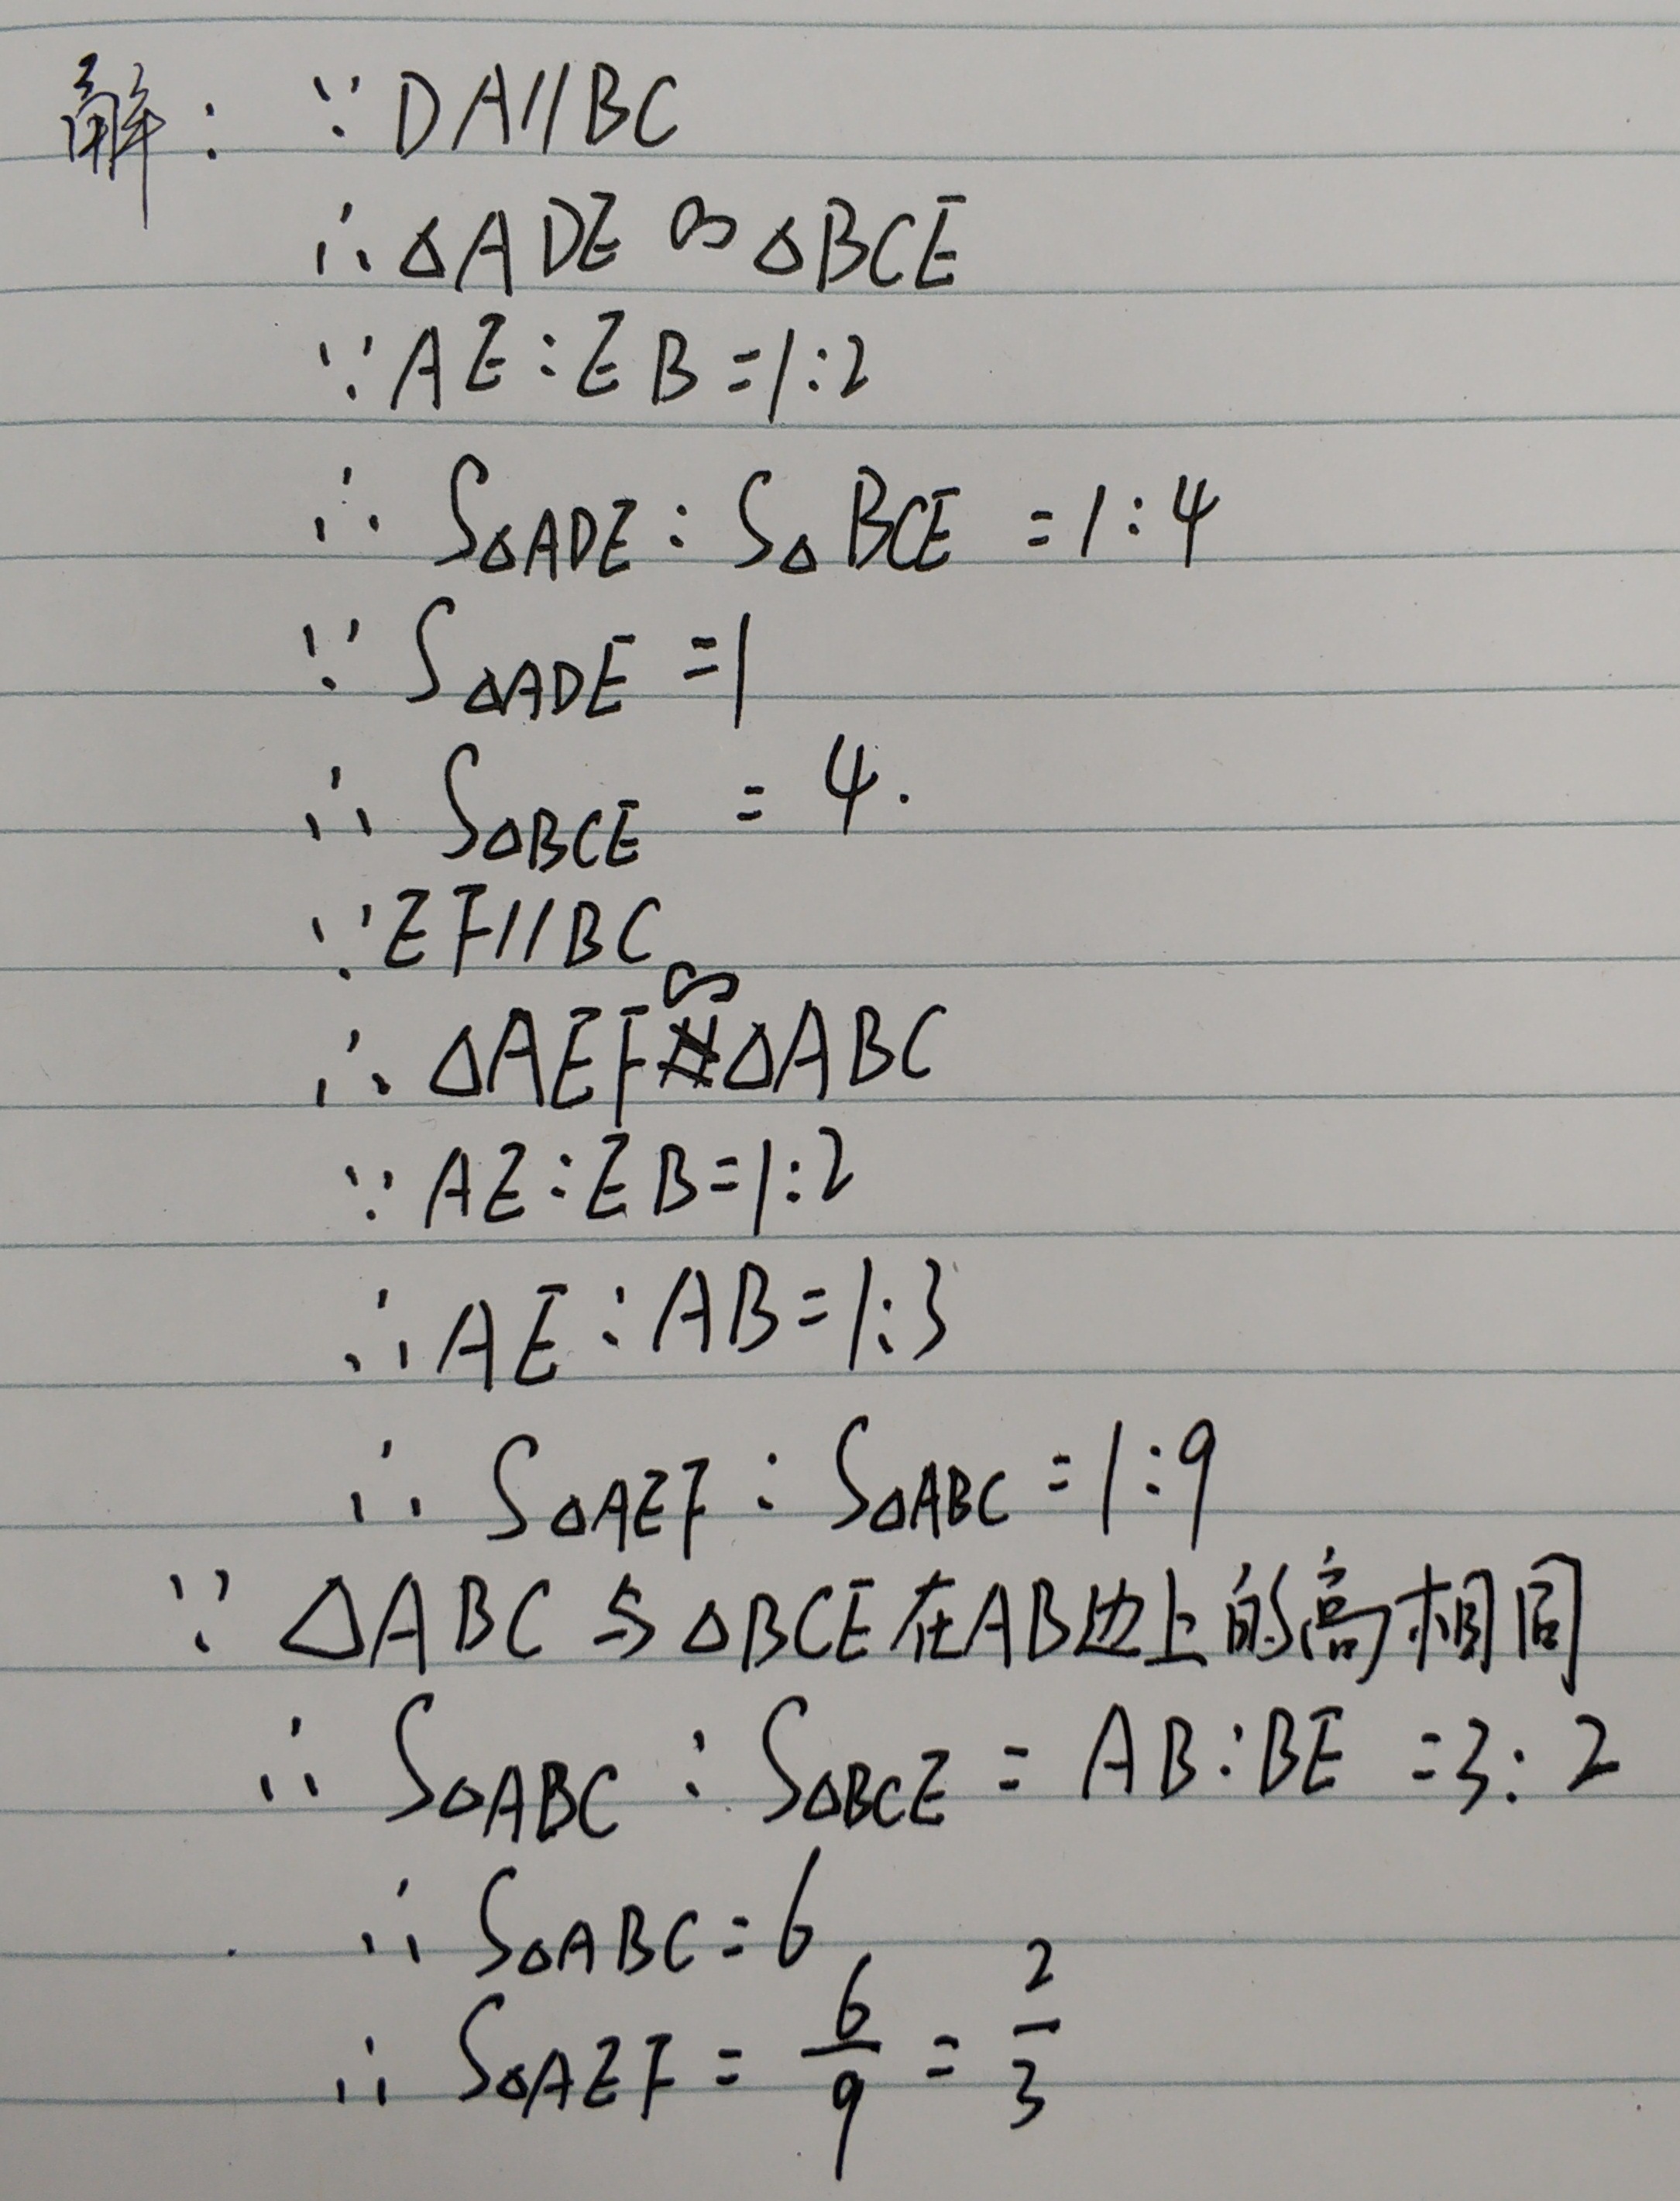 解：∵DA//BC
∴△ADE∽△BCE
∵AE:EB=1:2
∴S△ADE:S△BCE=1:4
∵S△ADE=1
∴S△BCE=4.
∵EF//BC
∴△AEF∽△ABC
∵AE:EB=1:2
∴AE:AB=1:3
∴S△AEF:S△ABC=1:9
∵△ABC与△BCE在AB边上的高相同
∴S△ABC:S△BCE=AB:BE=3:2
∴S△ABC=6
∴S△AEF=6/9=2/3